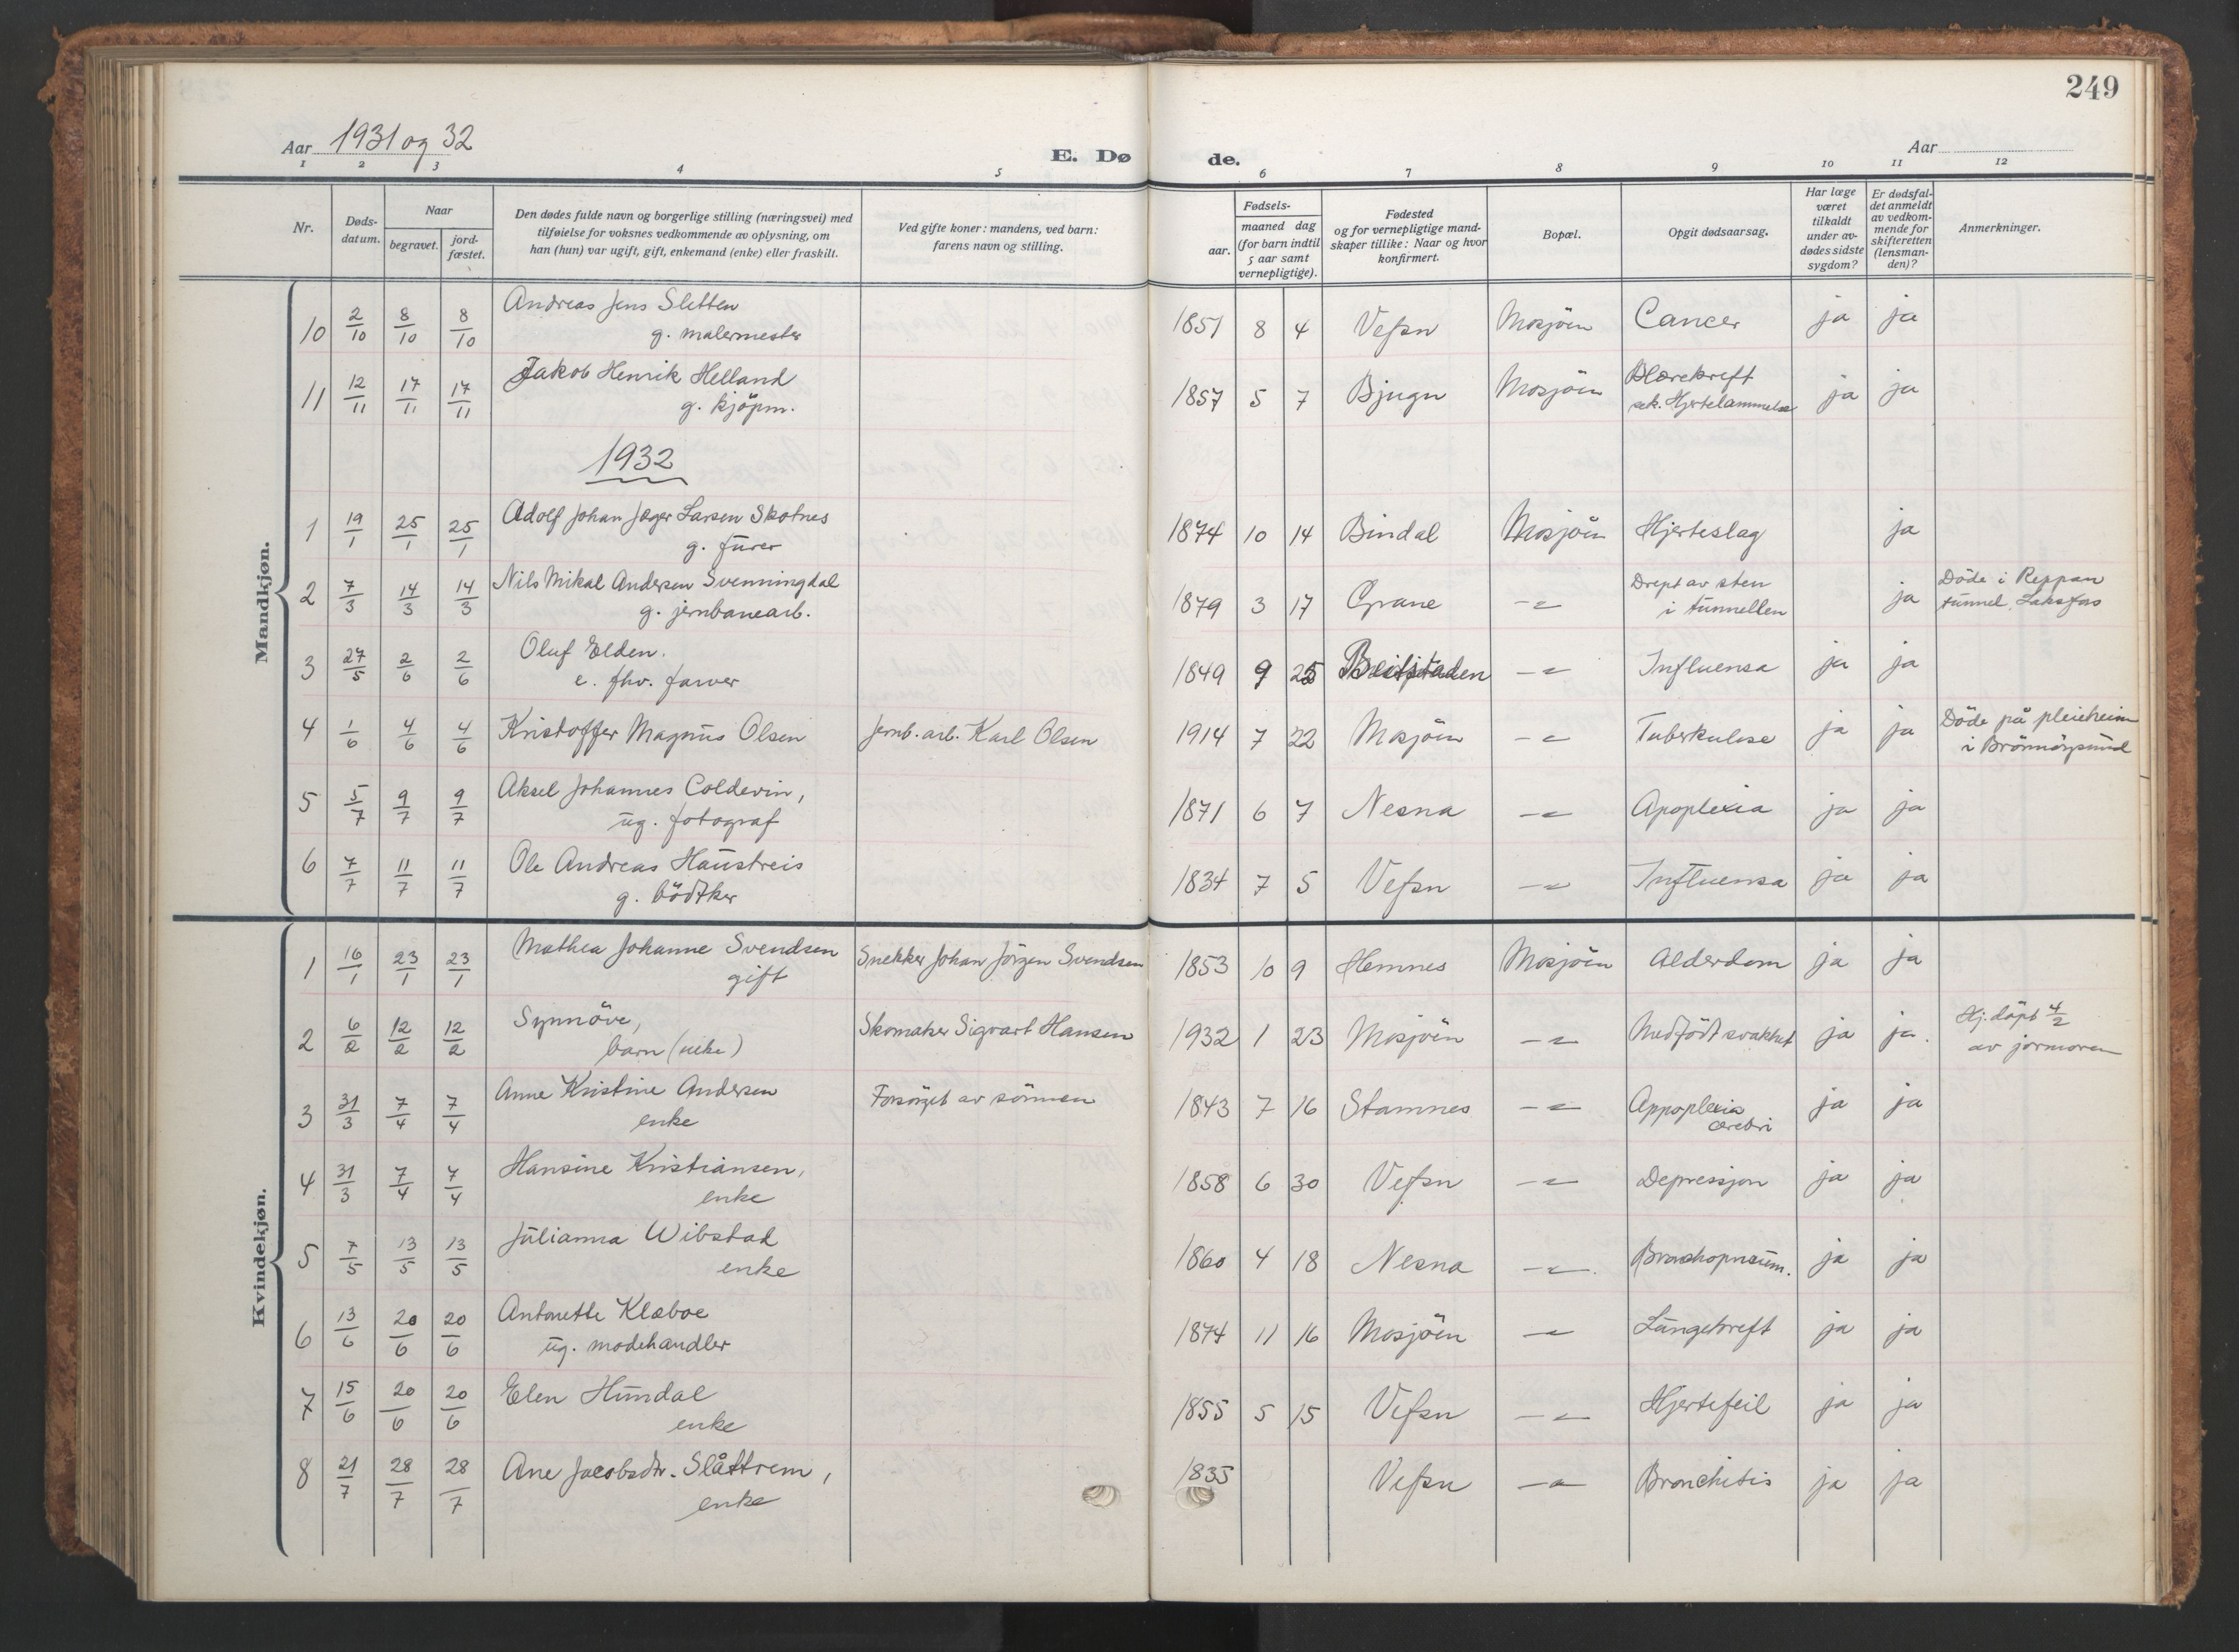 249
Aar 1931 og 32
E. Dø de.
Aar
1 2 3 4 5 6 7 8 9 10 11 12
Nr.
Døds-datum.
Naar
begravet.
jord-fæstet.
Den dødes fulde navn og borgerlige stilling (næringsvei) med tilføielse for voksnes vedkommende av oplysning, om han (hun) var ugift, gift, enkemand (enke) eller fraskilt.
Ved gifte koner: mandens, ved barn: farens navn og stilling.
Fødsels-
aar.
maaned dag
(for barn indtil 5 aar samt vernepligtige).
Fødested og for vernepligtige mandskaper tillike: Naar og hvor konfirmert.
Bopæl.
Opgit dødsaarsag.
Har læge været tilkaldt under avdødes sidste sygdom?
Er dødsfaldet anmeldt av vedkommende for skifteretten (lensmanden)?
Anmerkninger.
Mandkjøn.
10 2/10 8/10 8/10 Andreas Jens Sletten 1851 8 4 Vefsn Mosjöen Cancer ja ja
g. malermester
11 12/11 17/11 17/11 Jakob Henrik Helland 1857 5 7 Bjugn Mosjöen Blærekreft ja ja
g. kjöpm. sek. Hjertelammelse
1932
1 19/1 25/1 25/1 Adolf Johan Jæger Larsen Skotnes 1874 10 14 Bindal Mosjöen Hjerteslag ja
g. furer
2 7/3 14/3 14/3 Nils Mikal Andersen Svenningdal 1879 3 17 Grane -"- Drept av sten ja Döde i Reppan
g. jernbanearb. i tunnellen tunnel. Laksfos
3 27/5 2/6 2/6 Oluf Elden. 1849 9 25 Beitstaden -"- Influensa ja ja
e. fhv. farver
4 1/6 4/6 4/6 Kristoffer Magnus Olsen Jernb. arb. Karl Olsen 1914 7 22 Mosjöen -"- Tuberkulose ja ja Döde på pleieheim
i Brönnöysund
5 5/7 9/7 9/7 Aksel Johannes Coldevin, 1871 6 7 Nesna -"- Apoplexia ja ja
ug. fotograf
6 7/7 11/7 11/7 Ole Andreas Haustreis 1834 7 5 Vefsn -"- Influensa ja ja
g. bödtker
Kvindekjøn.
1 16/1 23/1 23/1 Mathea Johanne Svendsen Snekker Johan Jörgen Svendsen 1853 10 9 Hemnes Mosjöen Alderdom ja ja
gift
2 6/2 12/2 12/2 Synnöve, Skomaker Sigvart Hansen 1932 1 23 Mosjöen -"- Medfödt svakhet ja ja. Hj. döpt 4/2
barn av jormoren
3 31/3 7/4 7/4 Anne Kristine Andersen Forsörget av sönnen 1843 7 16 Stamnes -"- Appoplexia ja ja
enke cerebri
4 31/3 7/4 7/4 Hansine Kristiansen, 1858 6 30 Vefsn -"- Depressjon ja ja
enke
5 7/5 13/5 13/5 Julianna Wibstad 1860 4 18 Nesna -"- Bronchopneum. ja ja
enke
6 13/6 20/6 20/6 Antonette Klæboe 1874 11 16 Mosjöen -"- Lungekreft ja ja
ug. modehandler
7 15/6 20/6 20/6 Elen Hundal 1855 5 15 Vefsn -"- Hjertefeil ja ja
enke
8 21/7 28/7 28/7 Ane Jacobsdtr. Slåttrem, 1835 Vefsn -"- Bronchitis ja ja
enke